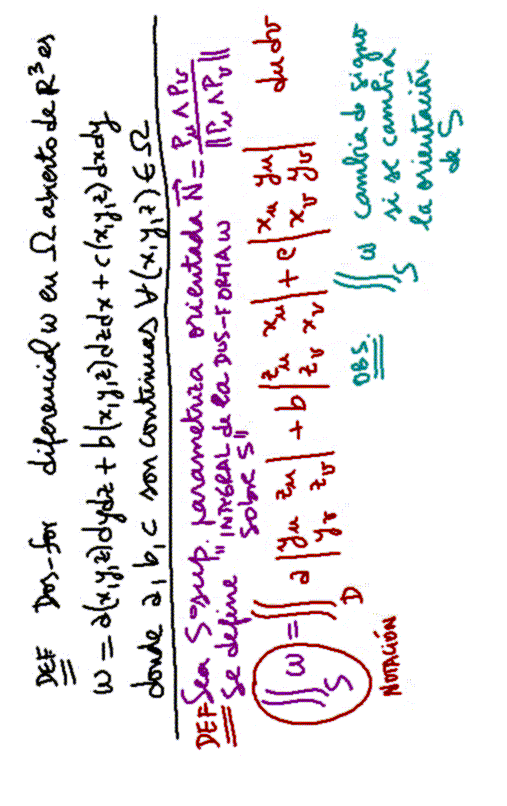 DEF Dos-for diferencial w en Ω abierto de R³ es
w = a(x,y,z)dydz + b(x,y,z)dzdx + c(x,y,z)dxdy
donde a, b, c son continuas ∀(x,y,z) ∈ Ω
DEF Sea S = sup. parametriza orientada N⃗ = Pu ∧ Pv / ||Pu ∧ Pv||
Se define "INTEGRAL de la DOS-FORMA w
sobre S"
∬_S w = ∬_D a |yu zu; yv zv| + b |zu xu; zv xv| + c |xu yu; xv yv| du dv
NOTACIÓN
OBS. ∬_S w cambia de signo
si se cambia
la orientación
de S